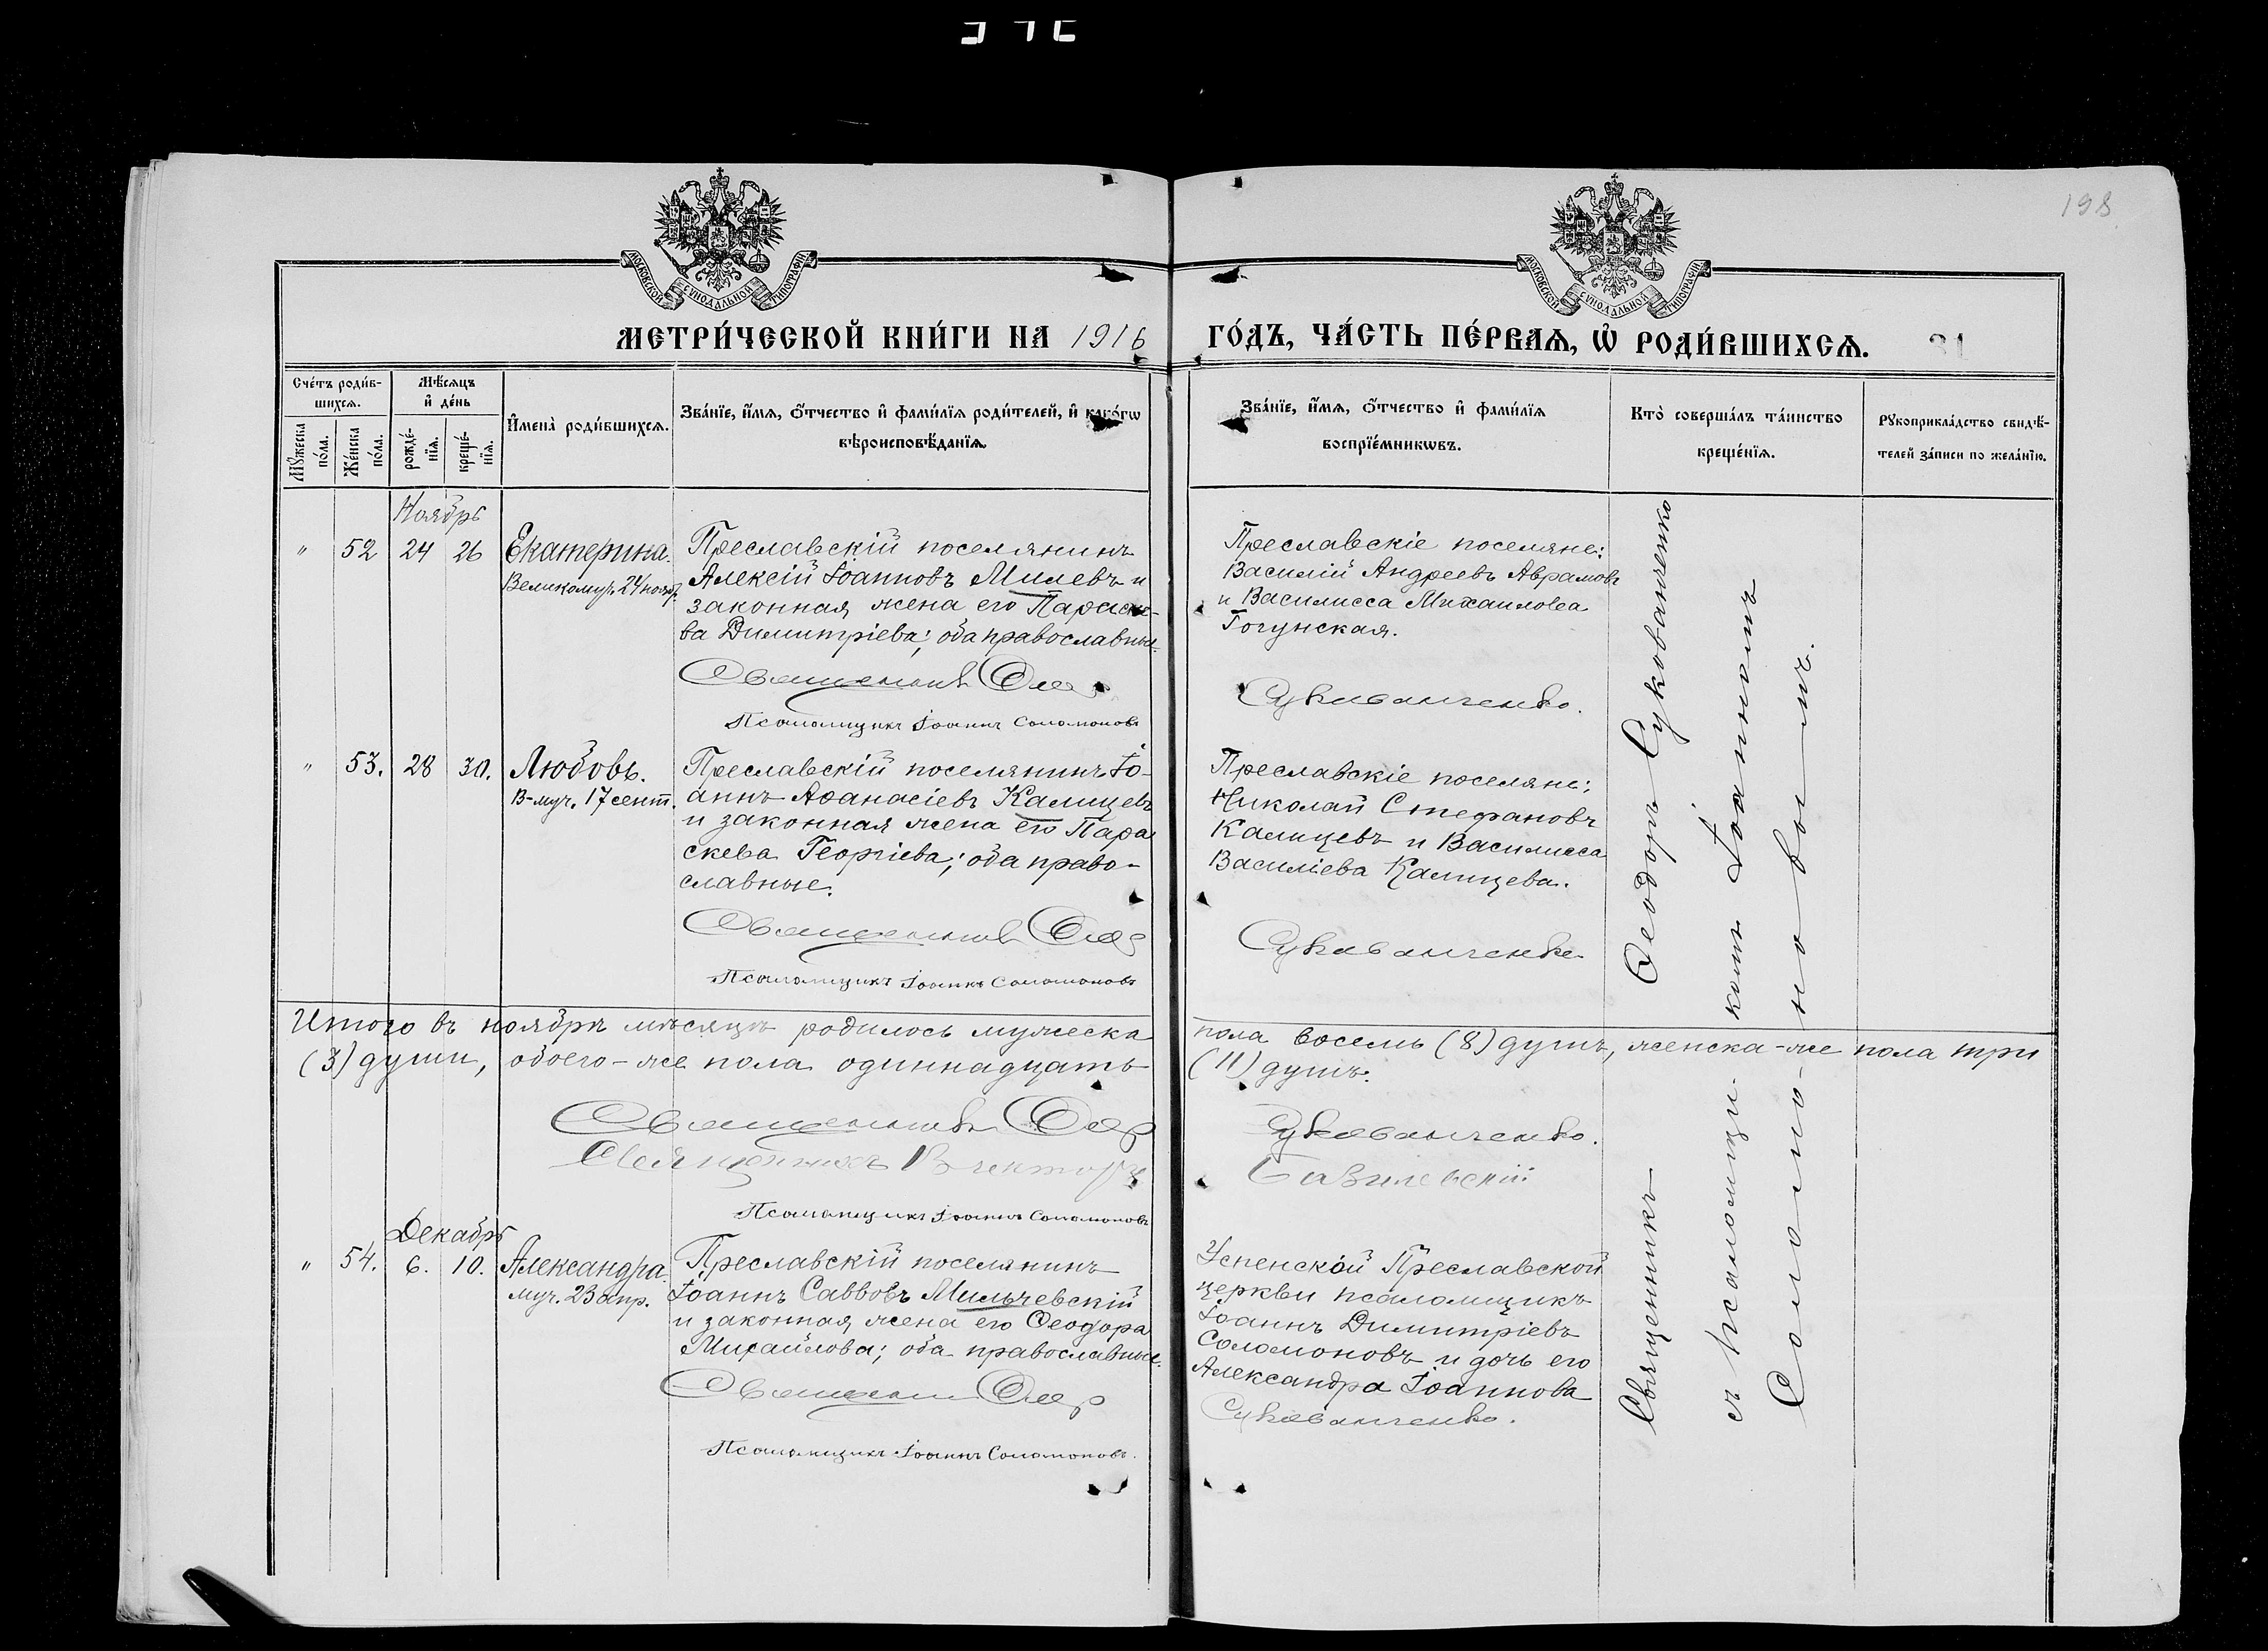 198
МОСКОВСКОЙ СУНОДАЛЬНОЙ ТИПОГРАФІИ
МОСКОВСКОЙ СУНОДАЛЬНОЙ ТИПОГРАФІИ
МЕТРИ́ЧЕСКОЙ КНИ́ГИ НА 1916 ГО́ДЪ, ЧА́СТЬ ПЕ́РВАѦ, Ѡ҆ РОДИ́ВШИХСѦ. 31
Сче́тъ роди́в-
шихсѧ.
Мꙋ́жеска
по́ла.
Же́нска
по́ла.
Мѣ́сѧцъ
и҆ де́нь
рожде́-
нїѧ.
креще́-
нїѧ.
И҆мена̀ роди́вшихсѧ.
Зва́нїе, и҆́мѧ, ѻ҆́тчество и҆ фами́лїѧ роди́телей, и҆ како́гѡ
вѣроисповѣ́данїѧ.
Зва́нїе, и҆́мѧ, ѻ҆́тчество и҆ фами́лїѧ
воспрїе́мникѡвъ.
Кто̀ соверша́лъ та́инство
креще́нїѧ.
Рꙋкоприкла́дство свидѣ́-
телей за́писи по жела́нїю.
Ноябрь
" 52 24 26 Екатерина.
Великомуч. 24 ноябр.
Преславскій поселянинъ
Алексій Іоанновъ Милевъ и
законная жена его Параске-
ва Димитріева; оба православные.
Священникъ Ѳеор
Псаломщикъ Іоаннъ Соломоновъ
Преславскіе поселяне:
Василій Андреевъ Аврамовъ
и Василисса Михаилова
Гогунская.
Сукованченко.
" 53. 28 30. Любовь.
В-муч. 17 сент.
Преславскій поселянинъ Іо-
аннъ Аѳанасіевъ Калицевъ
и законная жена его Пара
скева Георгіева; оба право-
славные.
Священникъ Ѳеор
Псаломщикъ Іоаннъ Соломоновъ
Преславскіе поселяне:
Николай Стефановъ
Калицевъ и Василисса
Василіева Калицева.
Сукованченко
Итого въ ноябрѣ мѣсяцѣ родилось мужеска пола восемь (8) душъ, женска-же пола три
(3) души, обоего-же пола одиннадцать (11) душъ.
Священникъ Ѳеор Сукованченко.
Священникъ Викторъ
Псаломщикъ Іоаннъ Соломоновъ
Декабрь
" 54. 6. 10. Александра.
муч. 23 апр.
Преславскій поселянинъ
Іоаннъ Саввовъ Мильчевскій
и законная жена его Ѳеодора
Михайлова; оба православные.
Священникъ Ѳеор
Псаломщикъ Іоаннъ Соломоновъ.
Успенской Преславской
церкви псаломщикъ
Іоаннъ Димитріевъ
Соломоновъ и дочь его
Александра Іоаннова
Сукованченко.
Священникъ Ѳеодоръ Сукованченко
съ псаломщи-комъ Іоанномъ
Соломо-новымъ.